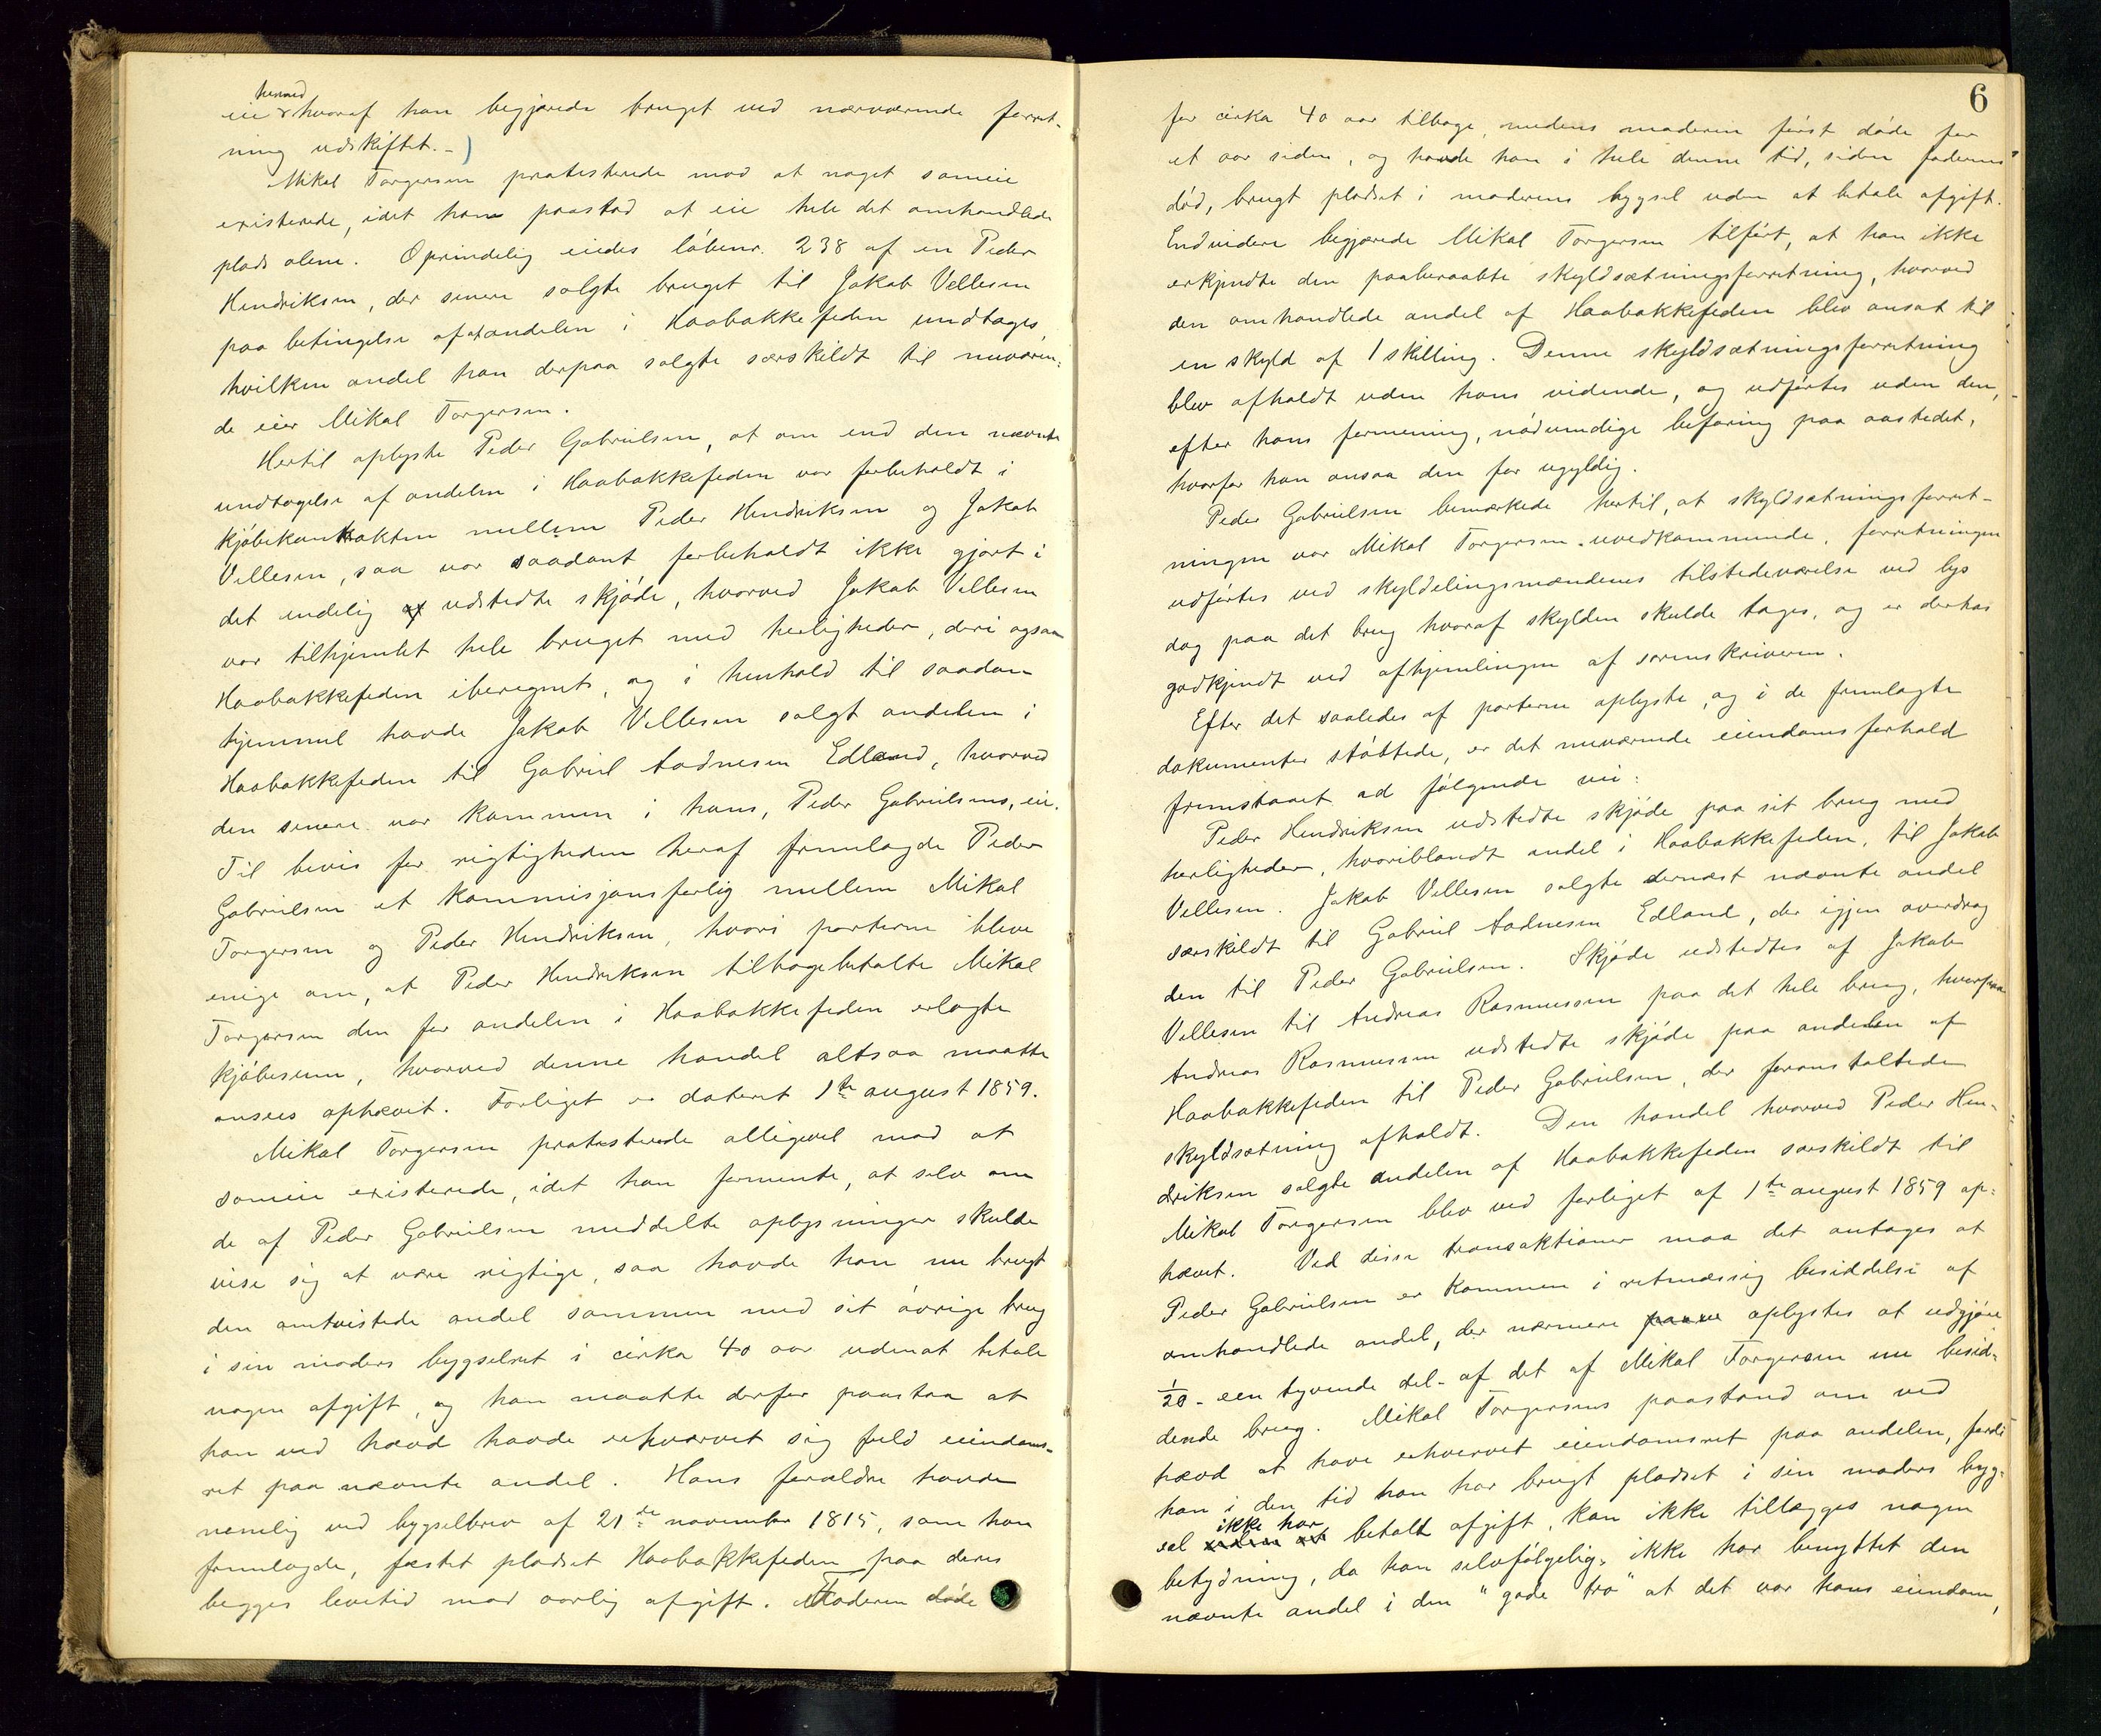 hermed
eie & hvoraf han begjærede bruget ved nærværende forret-
ning udskiftet.-)
Mikal Torgersen protesterede mod at noget sameie
existerede, idet han paastod at eie hele det omhandlede
plads alene. Oprindelig eiedes løbenr. 238 af en Peder
Hendriksen, der senere solgte bruget til Jakob Vellesen
paa betingelse af at andelen i Haabakkefeden undtages,
hvilken andel han derpaa solgte særskildt til nuværen-
de eier Mikal Torgersen.
Hertil oplyste Peder Gabrielsen, at om end den nævnte
undtagelse af andelen i Haabakkefeden var forbeholdt i
kjøbekontrakten mellem Peder Hendriksen og Jakob
Vellesen, saa var saadant forbeholdt ikke gjort i
det endelig af udstedte skjøde, hvorved Jakob Vellesen
var tilhjemlet hele bruget med herligheder, deri ogsaa
Haabakkefeden iberegnet, og i henhold til saadan
hjemmel havde Jakob Vellesen solgt andelen i
Haabakkefeden til Gabriel Aadnesen Edland, hvorved
den senere var kommen i hans, Peder Gabrielsens, eie.
Til bevis for rigtigheden heraf fremlagde Peder
Gabrielsen et kommisjonsforlig mellem Mikal
Torgersen og Peder Hendriksen, hvori parterne bleve
enige om, at Peder Hendriksen tilbagebetalte Mikal
Torgersen den for andelen i Haabakkefeden erlagte
kjøbesum, hvorved denne handel altsaa maatte
ansees ophævet. Forliget er dateret 1ste august 1859.
Mikal Torgersen protesterede alligevel mod at
sameie existerede, idet han formente, at selv om
de af Peder Gabrielsen meddelte oplysninger skulde
vise sig at være rigtige, saa havde han nu brugt
den omtvistede andel sammen med sit øvrige brug
i sin moders bygselret i cirka 40 aar udenat betale
nogen afgift, og han maatte derfor paastaa at
han ved hævd havde erhvervet sig fuld eiendoms-
ret paa nævnte andel. Hans forældre havde
nemlig ved bygselbrev af 21de november 1815, som han
fremlagde, fæstet pladset Haabakkefeden paa deres
begges levetid mod aarlig afgift. Faderen døde
6
for cirka 40 aar tilbage, medens moderen først døde for
et aar siden, og havde han i hele denne tid, siden faderens
død, brugt pladset i moderens bygsel uden at betale afgift.
Endvidere begjærede Mikal Torgersen tilført, at han ikke
erkjendte den paaberaabte skyldsætningsforretning, hvorved
den omhandlede andel af Haabakkefeden blev ansat til
en skyld af 1 skilling. Denne skyldsætningsforretning
blev afholdt uden hans vidende, og udførtes uden den,
efter hans formening, nødvendige befaring paa aastedet,
hvorfor han ansaa den for ugyldig.
Peder Gabrielsen bemærkede hertil, at skyldsætningsforret-
ningen var Mikal Torgersen uvedkommende, forretningen
udførtes ved skyldelingsmændenes tilstedeværelse ved lys
dag paa det brug hvoraf skylden skulde tages, og er derhos
godkjendt ved afhjemlingen af sorenskriveren.
Efter det saaledes af parterne oplyste, og i de fremlagte
dokumenter støttede, er det nuværende eiendomsforhold
fremstaaet ad følgende vei:
Peder Hendriksen udstedte skjøde paa sit brug med
herligheder, hvoriblandt andel i Haabakkefeden, til Jakob
Vellesen. Jakob Vellesen solgte dernæst nævnte andel
særskildt til Gabriel Aadnesen Edland, der igjen overdrog
den til Peder Gabrielsen. Skjøde udstedtes af Jakob
Vellesen til Andreas Rasmussen paa det hele brug, hvorpaa
Andreas Rasmussen udstedte skjøde paa andelen af
Haabakkefeden til Peder Gabrielsen, der foranstaltede
skyldsætning afholdt. Den handel hvorved Peder Hen-
driksen solgte andelen af Haabakkefeden særskildt til
Mikal Torgersen blev ved forliget af 1ste august 1859 op-
hævet. Ved disse transaktioner maa det antages at
Peder Gabrielsen er kommen i retmæssig besiddelse af
omhandlede andel, der nærmere oplystes at udgjøre
1/20 - een tyvende del - af det af Mikal Torgersen nu besid-
dende brug. Mikal Torgersens paastand om ved
hævd at have erhvervet eiendomsret paa andelen, fordi
han i den tid han har brugt pladset i sin moders byg-
ikke har
sel uden at betalt afgift, kan ikke tillægges nogen
betydning, da han selvfølgelig ikke har benyttet den
nævnte andel i den "gode tro" at det var hans eiendom,